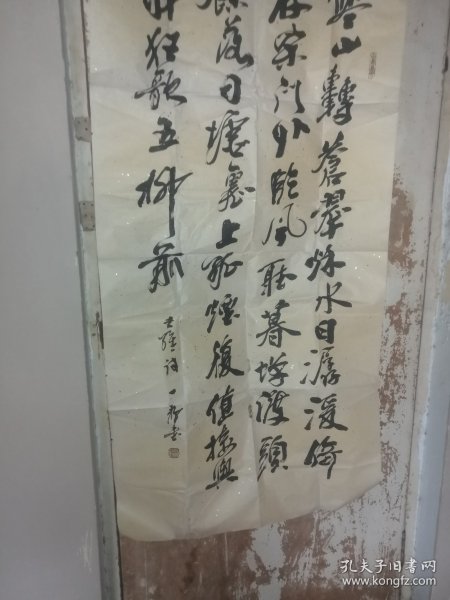 寒山轉蒼翠秋水日潺湲倚
杖柴門外臨風聽暮蟬渡頭
餘落日墟裏上孤煙復值接輿
醉狂歌五柳前
王維詩
書
孔夫子旧书网
www.kongfz.com